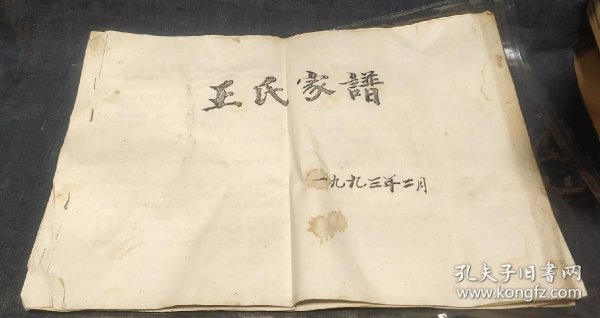 王氏家譜
一九九三年二月
孔夫子旧书网
www.kongfz.com